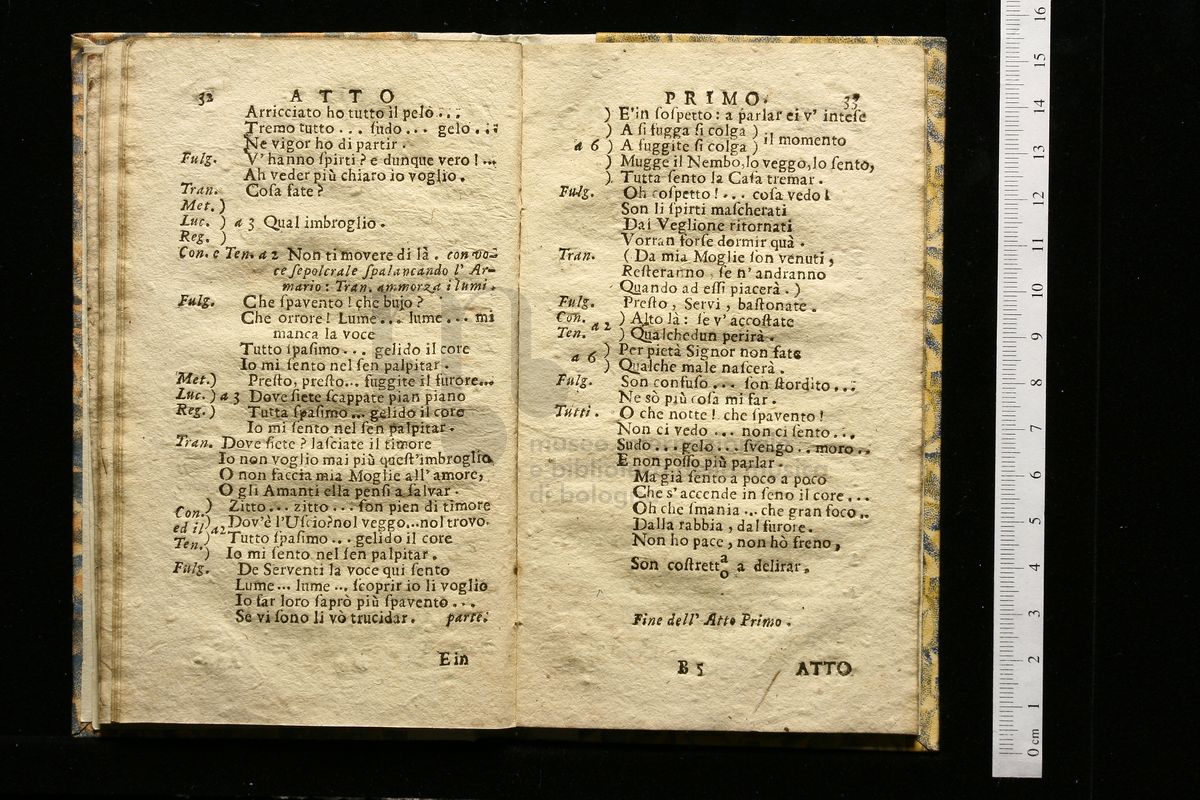 32 ATTO
Arricciato ho tutto il pelo...
Tremo tutto... ſudo... gelo...
Ne vigor ho di partir.
Fulg. V'hanno ſpirti? e dunque vero!...
Ah veder più chiaro io voglio.
Tran. Coſa fate?
Met.)
Luc. ) a 3 Qual imbroglio.
Reg. )
Con. e Ten. a 2 Non ti movere di là. con vo-
ce ſepolcrale ſpalancando l'Ar-
mario: Tran. ammorza i lumi.
Fulg. Che ſpavento! che bujo?
Che orrore! Lume... lume... mi
manca la voce
Tutto ſpaſimo... gelido il core
Io mi ſento nel ſen palpitar.
Met.) Preſto, preſto... fuggite il furore...
Luc.) a 3 Dove ſiete ſcappate pian piano
Reg.) Tutta ſpaſimo... gelido il core
Io mi ſento nel ſen palpitar.
Tran. Dove ſiete? laſciate il timore
Io non voglio mai più queſt'imbroglio
O non faccia mia Moglie all'amore,
O gli Amanti ella penſi a ſalvar.
Con.) Zitto... zitto... ſon pien di timore
ed il) a2 Dov'è l'Uſcio? nol veggo... nol trovo.
Ten.) Tutto ſpaſimo... gelido il core
) Io mi ſento nel ſen palpitar.
Fulg. De Serventi la voce qui ſento
Lume... lume... ſcoprir io li voglio
Io far loro ſaprò più ſpavento...
Se vi ſono li vò trucidar. parte.
Ein
PRIMO. 33
) E'in ſoſpetto: a parlar ei v'inteſe
) A ſi fugga ſi colga )
a 6 ) A fuggite ſi colga ) il momento
) Mugge il Nembo, lo veggo, lo ſento,
) Tutta ſento la Caſa tremar.
Fulg. Oh coſpetto!... coſa vedo!
Son li ſpirti maſcherati
Dai Veglione ritornati
Vorran forſe dormir quà.
Tran. (Da mia Moglie ſon venuti,
Reſteranno, ſe n'andranno
Quando ad eſſi piacerà.)
Fulg. Preſto, Servi, baſtonate.
Con. a 2 ) Alto là: ſe v'accoſtate
Ten. ) Qualchedun perirà.
a 6 ) Per pietà Signor non fate
) Qualche male naſcerà.
Fulg. Son confuſo... ſon ſtordito...
Ne sò più coſa mi far.
Tutti. O che notte! che ſpavento!
Non ci vedo... non ci ſento...
Sudo... gelo... ſvengo... moro..
E non poſſo più parlar.
Ma già ſento a poco a poco
Che s'accende in ſeno il core...
Oh che ſmania... che gran foco..
Dalla rabbia, dal furore.
Non ho pace, non hò freno,
Son coſtrett a/o a delirar.
Fine dell' Atto Primo.
B 5 ATTO